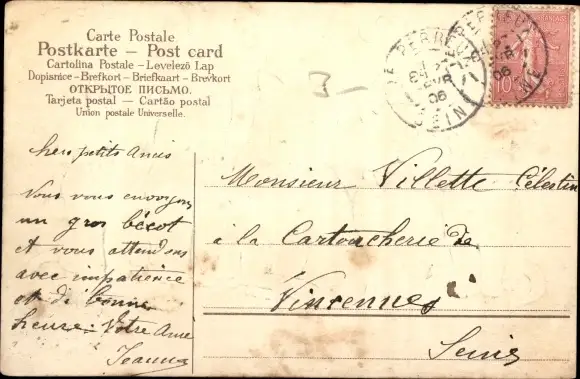 Carte Postale
Postkarte — Post card
Cartolina Postale - Levelező Lap
Dopisnice - Brefkort - Briefkaart - Brevkort
ОТКРЫТОЕ ПИСЬМО.
Tarjeta postal — Cartão postal
Union postale Universelle.
3 -
LE PERREUX
06
SEINE
10
chers petits Amis
Vous vous envoyons
un gros bécot
et vous attendons
avec impatience
et de bonne
heure. Votre Amie
Jeanne
Monsieur Villette Célestin
à la Cartoucherie de
Vincennes
Seine